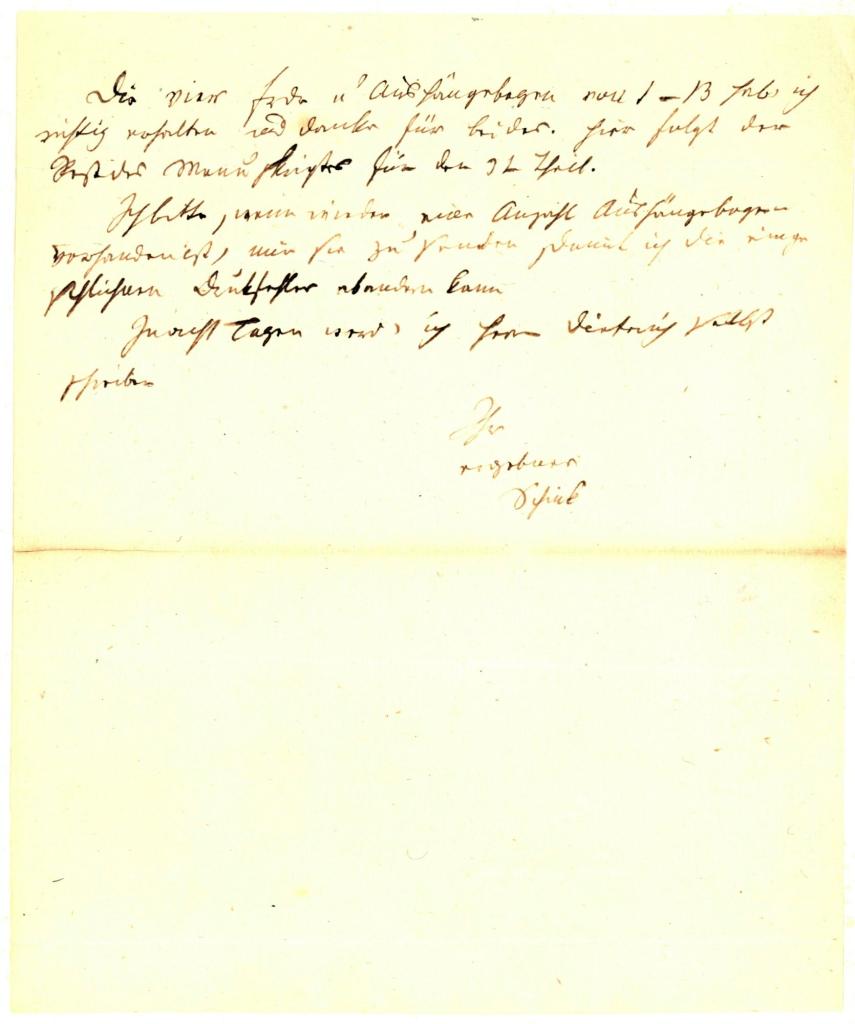 Die vier Frd u Aushängebogen von 1 – 13 hab ich
richtig erhalten und danke für beides. Hier folgt der
Rest des Manuskriptes für den 3t Theil.
Ich bitte, wenn wieder eine Anzahl Aushängebogen
vorhanden ist, mir sie zu senden, damit ich die einge
schlichnen Drukfehler abändern kann
In acht Tagen werd' ich Herrn Dieterich selbst
schreiben
Ihr
ergebner
Schink